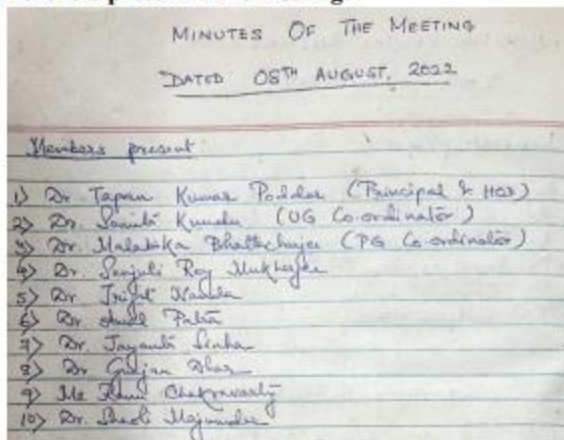 MINUTES OF THE MEETING
DATED 08TH AUGUST, 2022
Members present
1) Dr Tapan Kumar Poddar (Principal & HOS)
2) Dr. Kundu (UG Co-ordinator)
3) Dr. Malabika Bhattacharjee (PG Co-ordinator)
4) Dr Sanjuli Roy Mukherjee
5) Dr
6) Dr Patra
7) Dr. Jayanta Sinha
8) Dr Gunjan Dhar
9) Mr Chakravarty
10) Dr. Majumder